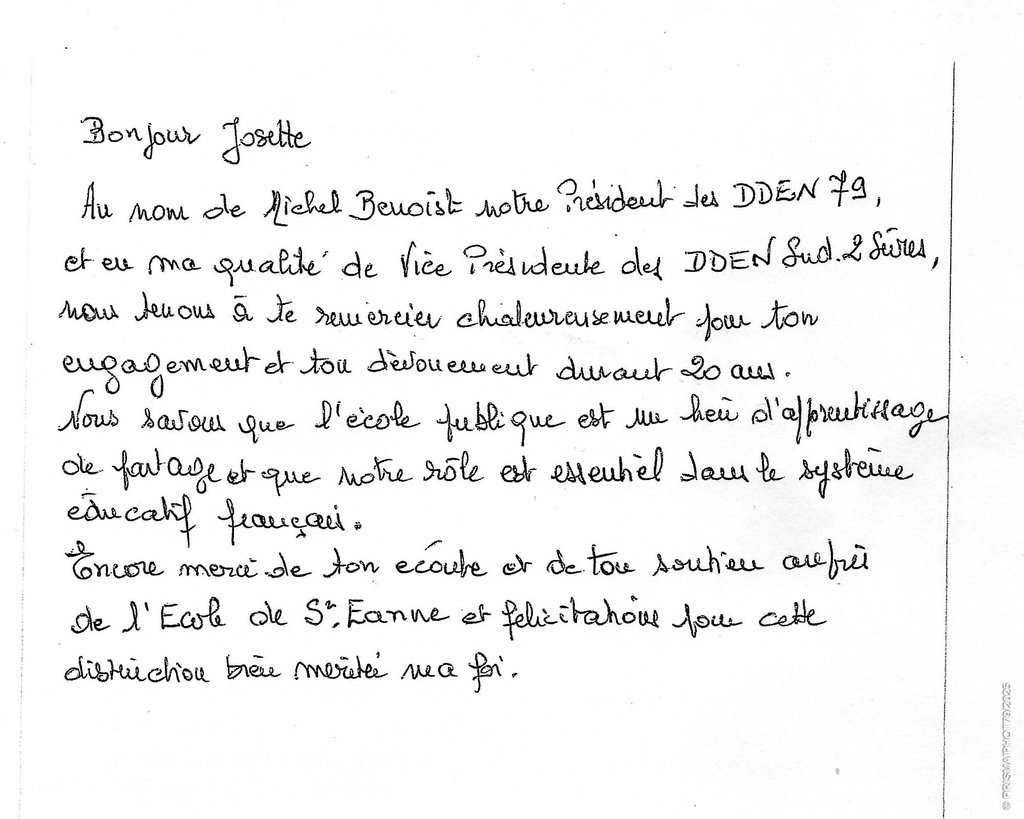 Bonjour Josette
Au nom de Michel Benoist notre Président des DDEN 79,
et en ma qualité de Vice Présidente des DDEN Sud. 2 Sèvres,
nous tenons à te remercier chaleureusement pour ton
engagement et ton dévouement durant 20 ans.
Nous savons que l'école publique est un lieu d'apprentissage
de partage et que notre rôle est essentiel dans le système
éducatif français.
Encore merci de ton écoute et de ton soutien auprès
de l'Ecole de St. Eanne et félicitations pour cette
distinction bien méritée ma foi.